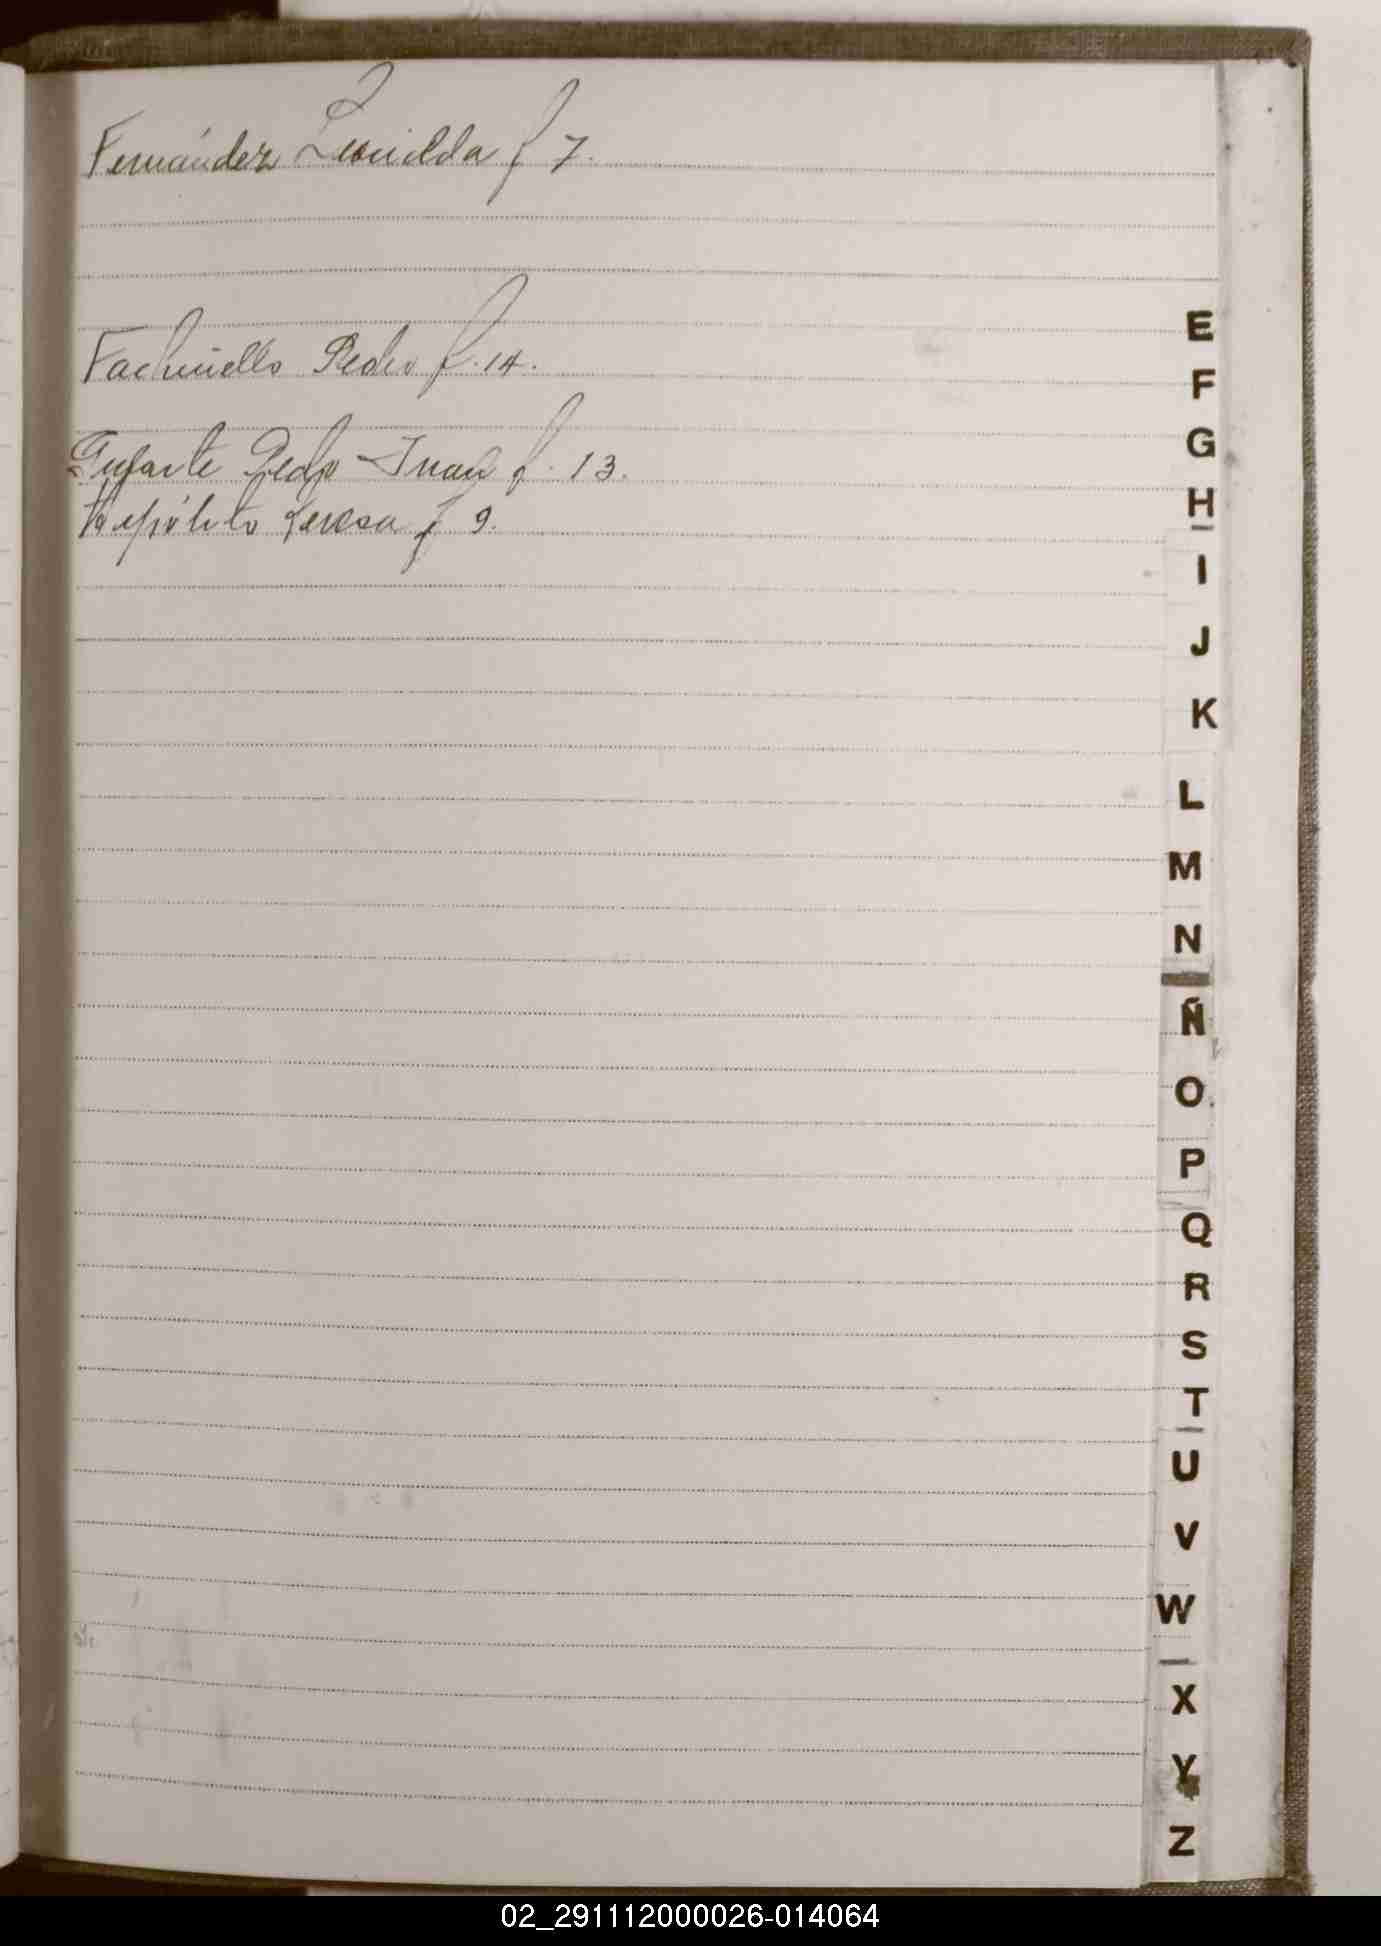 Fernández Leonilda f 7.
Fachinello Pedro f. 14.
Pedro Juan f. 13.
Hipólito Teresa f 9.
E
F
G
H
I
J
K
L
M
N
Ñ
O
P
Q
R
S
T
U
V
W
X
Y
Z
02_291112000026-014064